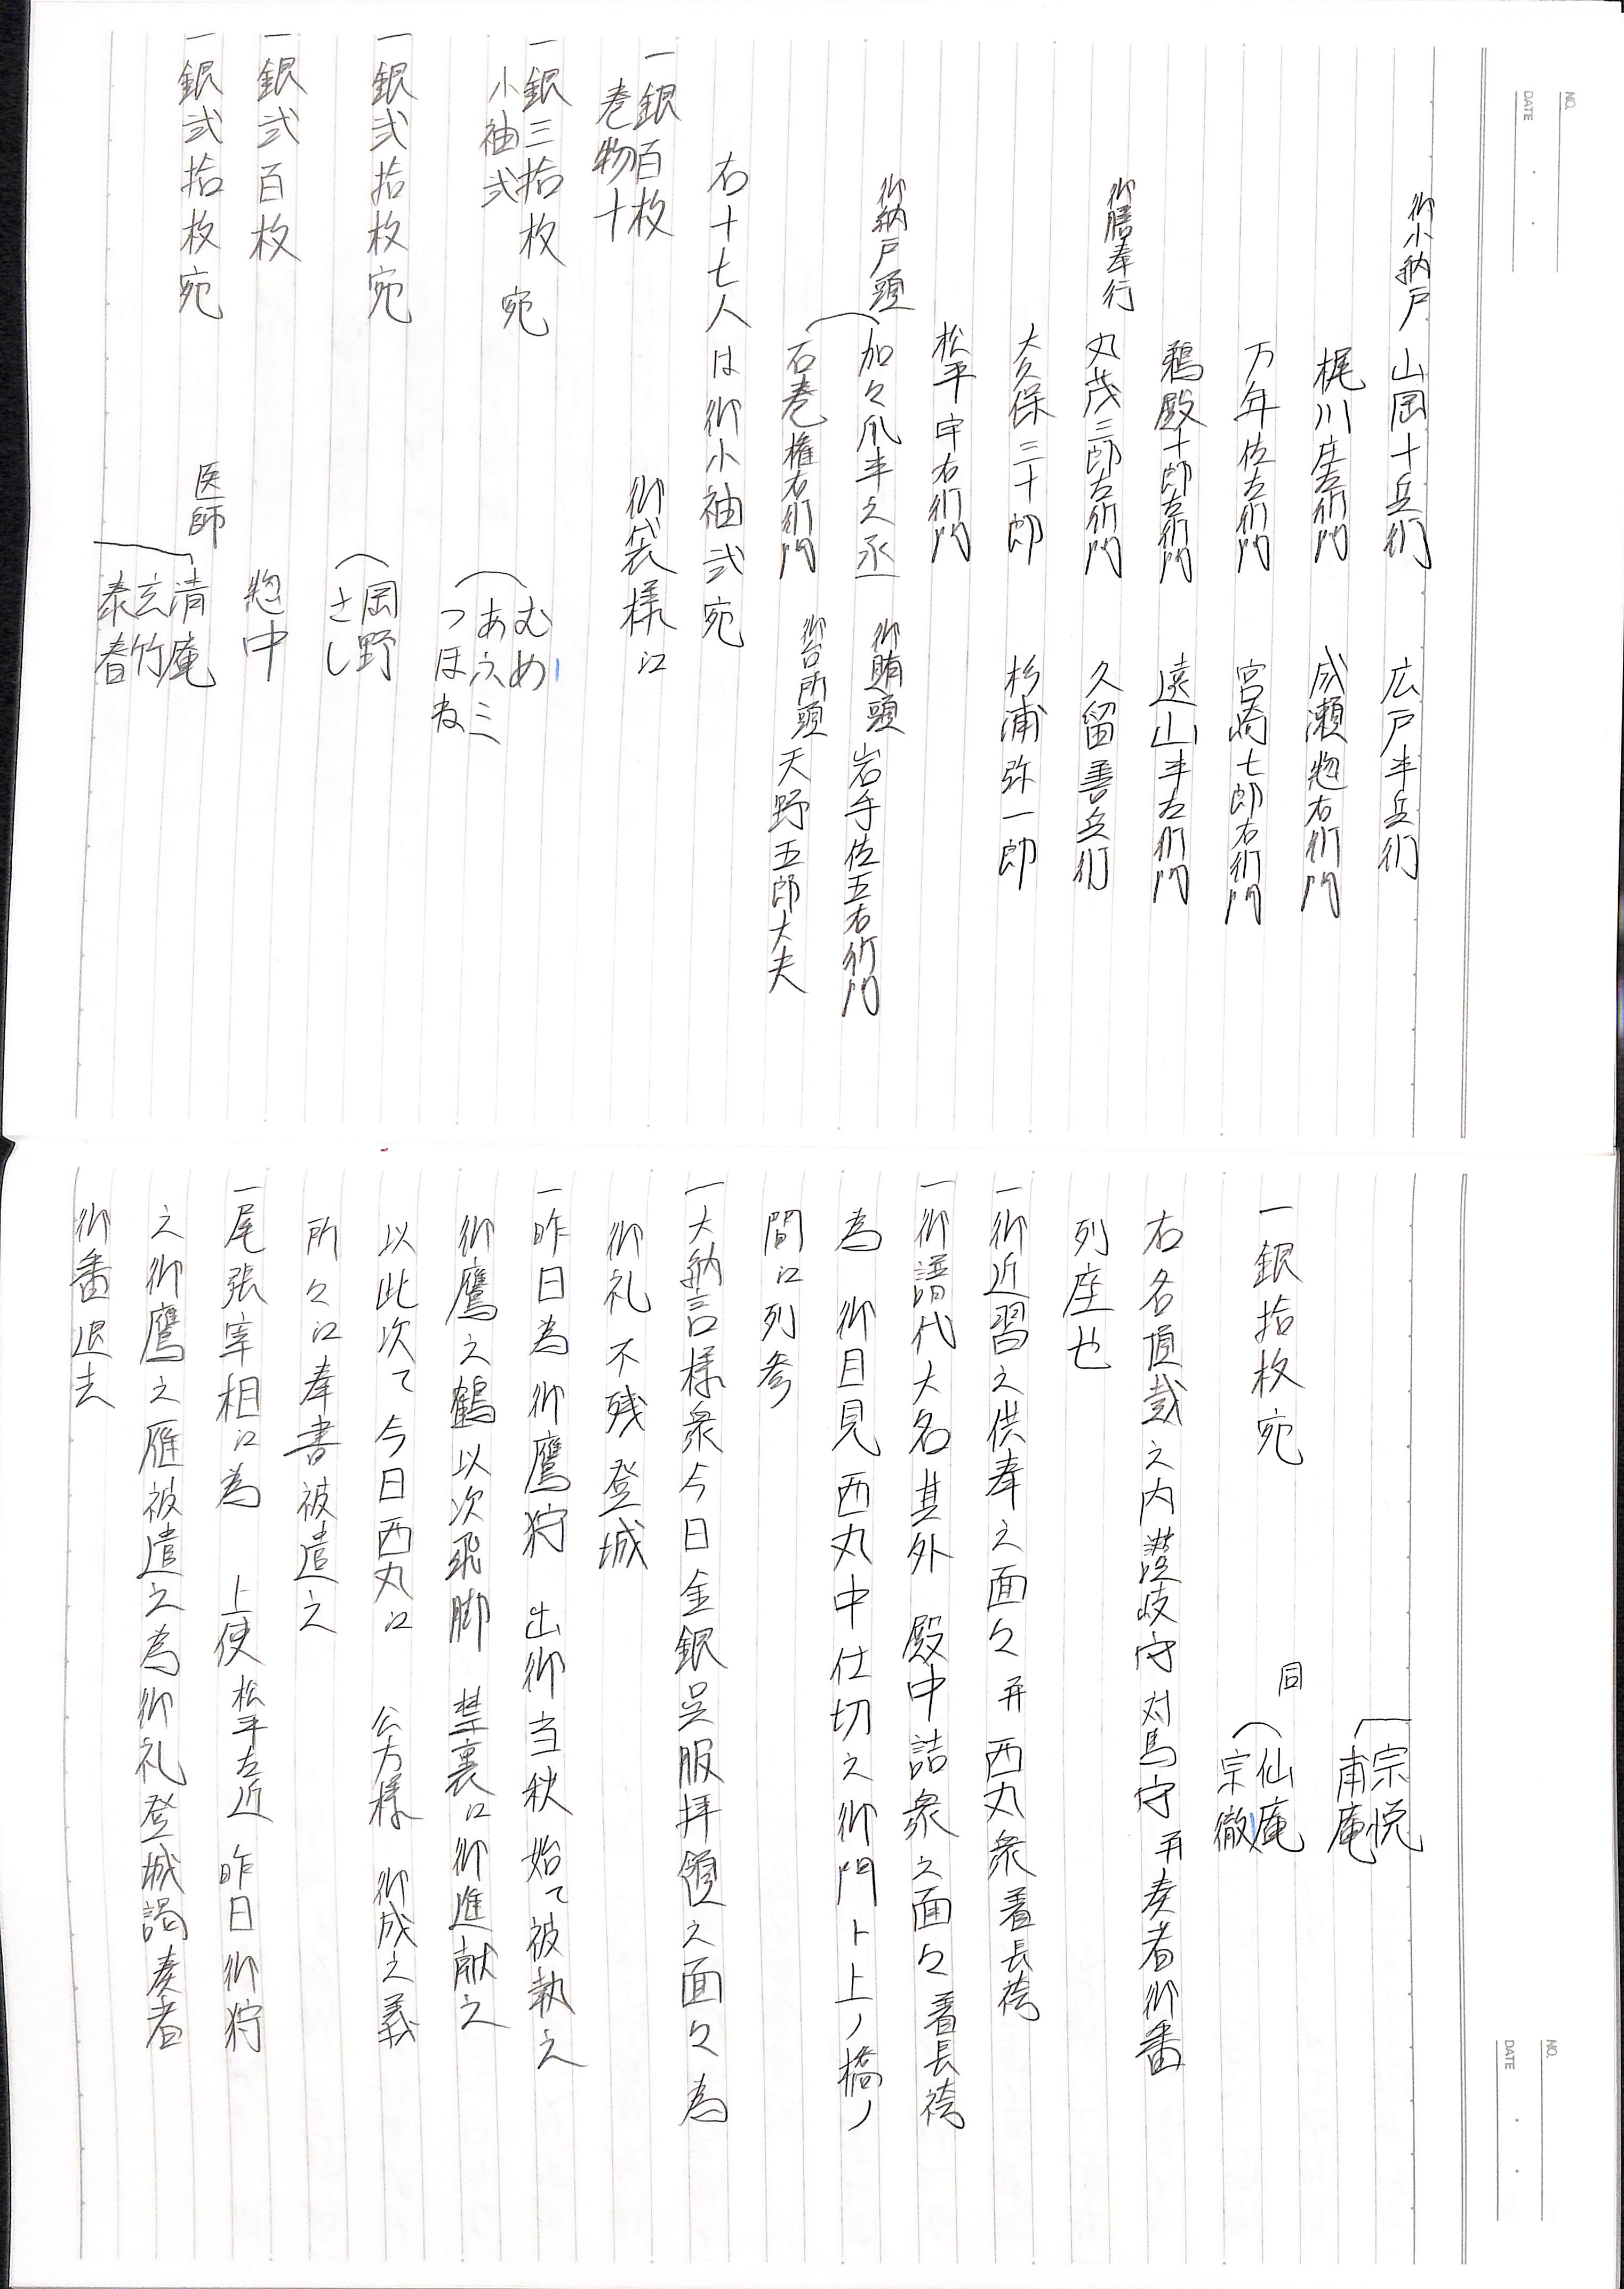 NO.
DATE
御小納戸 山岡十兵衛 広戸半兵衛
梶川庄左衛門 成瀬惣右衛門
万年佐左衛門 宮崎七郎右衛門
鵜殿十郎左衛門 遠山半左衛門
御膳奉行 丸茂三郎左衛門 久留善兵衛
大久保三十郎 杉浦弥一郎
松平宇右衛門
御納戸頭 加々爪半之丞 御賄頭 岩手佐五右衛門
石巻権右衛門 御台所頭 天野五郎大夫
右十七人は御小袖弐宛
一銀百枚 御袋様江
巻物十
一銀三拾枚 宛 むめ
小袖弐 あふ三
つほね
一銀弐拾枚宛 岡野
さし
一銀弐百枚 惣中
一銀弐拾枚宛 医師 清庵
玄竹
泰春
NO.
DATE
宗悦
甫庵
一銀拾枚宛 同 仙庵
宗徹
右名頂戴之内 守対馬守并奏者御番
列座也
一御近習之供奉之面々并西丸衆着長袴
一御譜代大名其外 殿中詰衆之面々着長袴
為 御目見西丸中仕切之御門ト上ノ橋ノ
間江列参
一大納言様衆今日金銀呉服拝領之面々為
御礼不残登城
一昨日為御鷹狩 出御当秋始て被執之
御鷹之鶴以次飛脚 禁裏江御進献之
以此次て今日西丸江 公方様 御成之義
所々江奉書被遣之
一尾張宰相江為 上使松平左近昨日御狩
之御鷹之雁被遣之為御礼登城謁奏者
御番退去